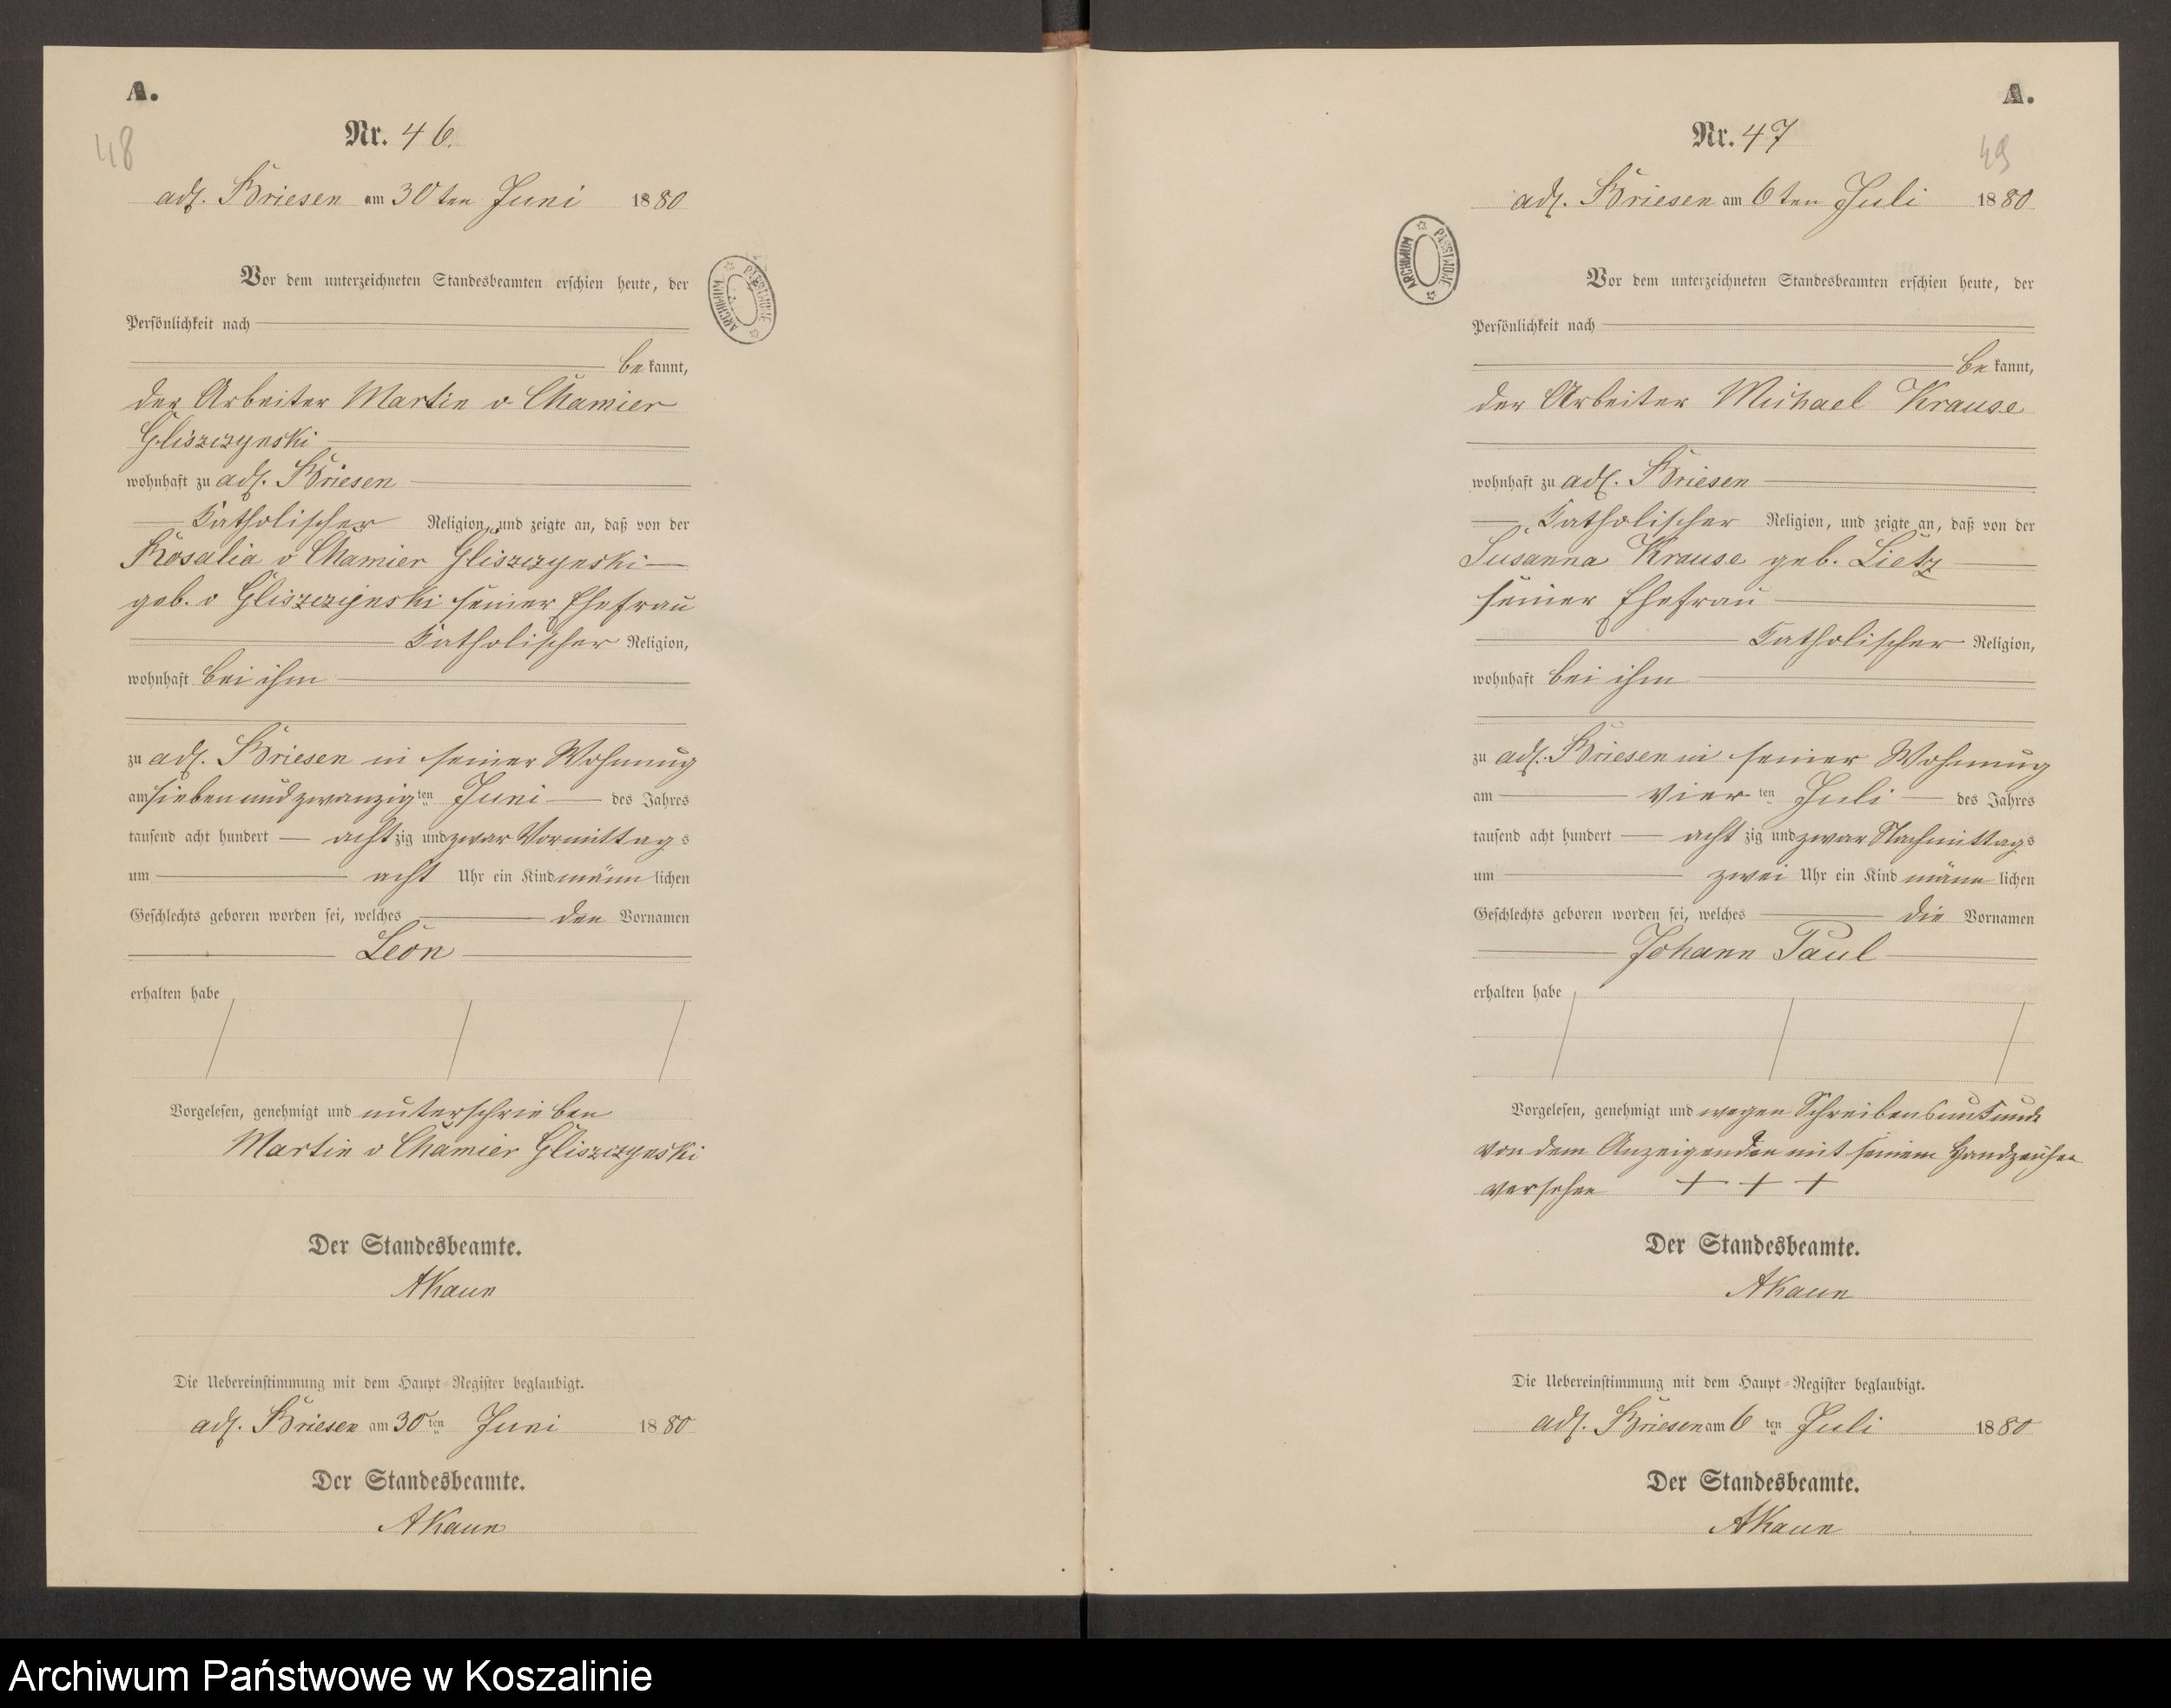 A.
48
Nr. 46.
adl. Briesen am 30ten Juni 1880
Vor dem unterzeichneten Standesbeamten erschien heute, der
Persönlichkeit nach
be kannt,
der Arbeiter Martin v Chamier
Gliszczynski
wohnhaft zu adl. Briesen
Katholischer Religion, und zeigte an, daß von der
Rosalia v Chamier Gliszczynski
geb. v Gliszczynski seiner Ehefrau
Katholischer Religion,
wohnhaft bei ihm
zu adl. Briesen in seiner Wohnung
am siebenundzwanzig ten Juni des Jahres
tausend acht hundert achtzig und zwar Vormittags
um acht Uhr ein Kind männlichen
Geschlechts geboren worden sei, welches den Vornamen
Leon
erhalten habe
Vorgelesen, genehmigt und unterschrieben
Martin v Chamier Gliszczynski
Der Standesbeamte.
AKaun
Die Uebereinstimmung mit dem Haupt-Register beglaubigt.
adl. Briesen am 30ten Juni 1880
Der Standesbeamte.
AKaun
ARCHIWUM PAŃSTWOWE
A.
49
Nr. 47
adl. Briesen am 6ten Juli 1880
ARCHIWUM PAŃSTWOWE
Vor dem unterzeichneten Standesbeamten erschien heute, der
Persönlichkeit nach
be kannt,
der Arbeiter Michael Krause
wohnhaft zu adl. Briesen
Katholischer Religion, und zeigte an, daß von der
Susanna Krause geb. Lietz
seiner Ehefrau
Katholischer Religion,
wohnhaft bei ihm
zu adl. Briesen in seiner Wohnung
am vier ten Juli des Jahres
tausend acht hundert achtzig und zwar Nachmittags
um zwei Uhr ein Kind männlichen
Geschlechts geboren worden sei, welches die Vornamen
Johann Paul
erhalten habe
Vorgelesen, genehmigt und wegen Schreibensunkunde
von dem Anzeigenden mit seinem Handzeichen
versehen + + +
Der Standesbeamte.
AKaun
Die Uebereinstimmung mit dem Haupt-Register beglaubigt.
adl. Briesen am 6 ten Juli 1880
Der Standesbeamte.
AKaun
Archiwum Państwowe w Koszalinie